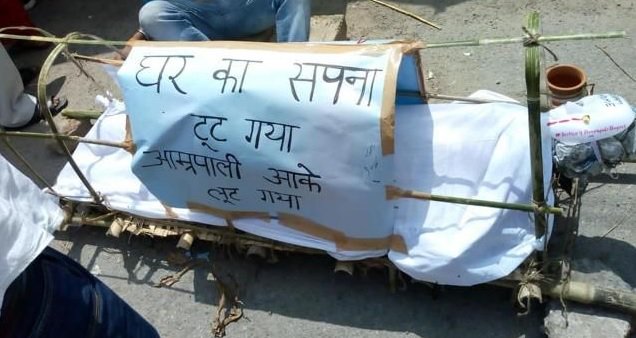 घर का सपना
टूट गया
आम्रपाली आके
लूट गया